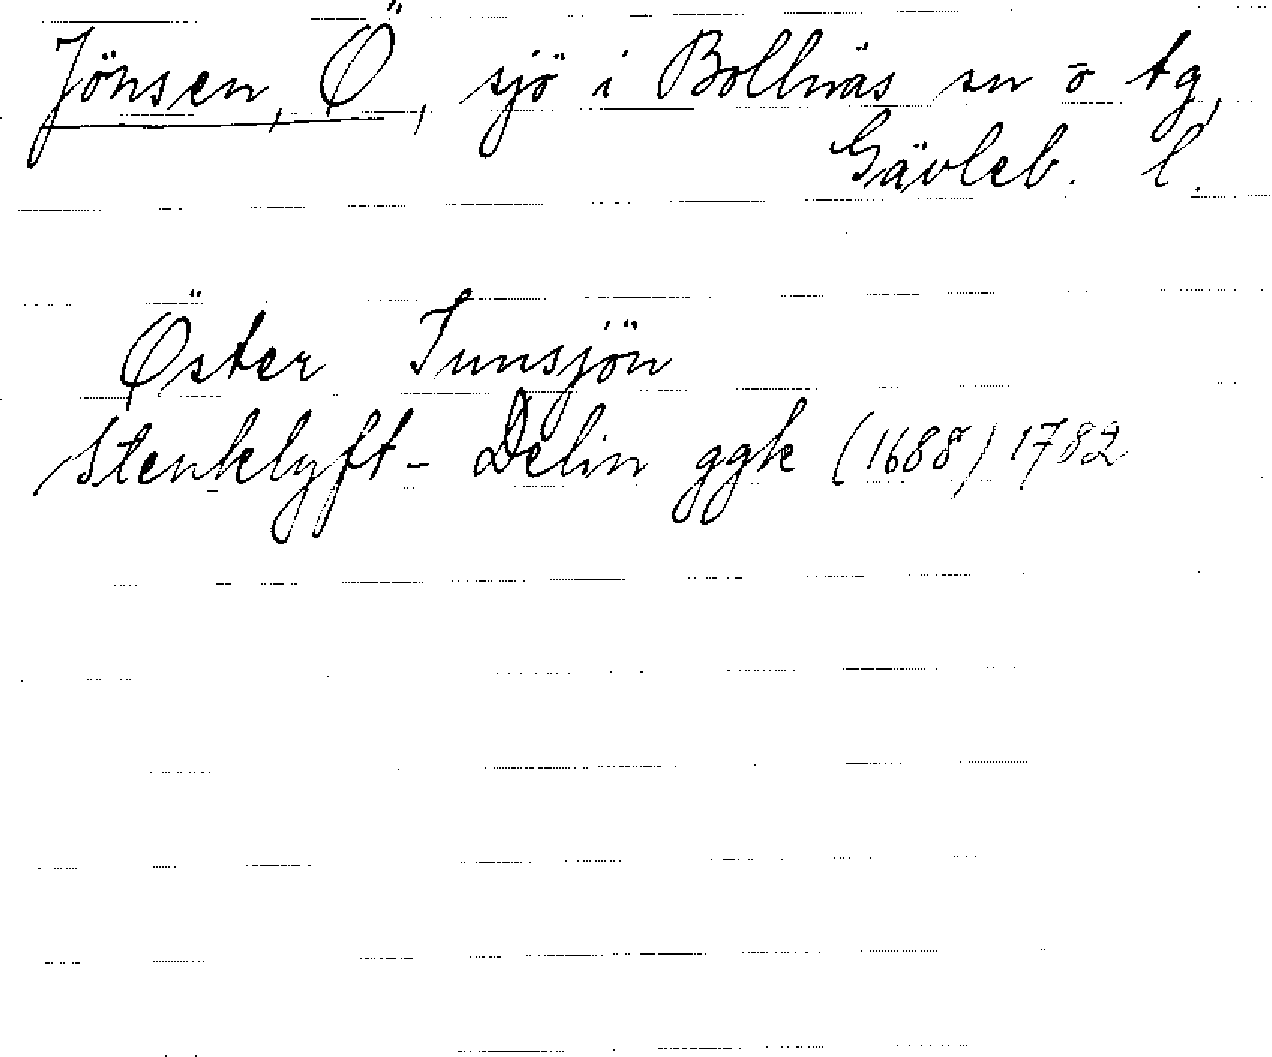 Jönsen, Ö, sjö i Bollnäs sn o tg,
Gävleb. l.
Öster Iunsjön
Stenklyft - Delin ggk (1688) 1782